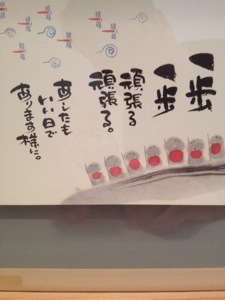 一歩
一歩
頑張る
頑張る。
あしたも
いい日で
あります様に。